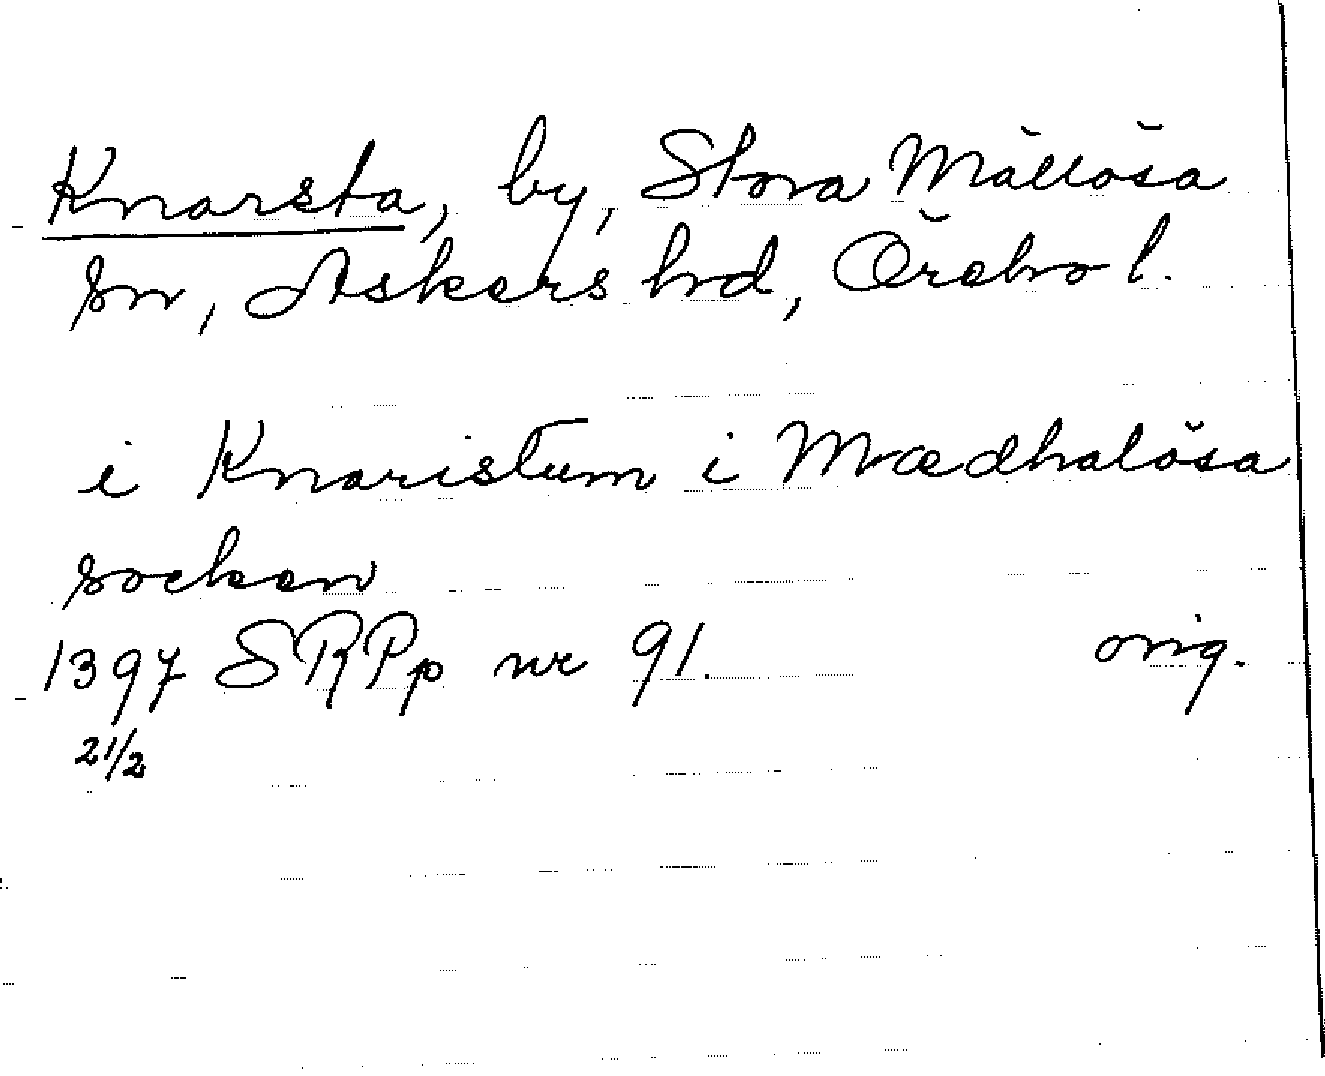 Knarsta, by, Stora Mällösa
sn, Askers hd, Örebro l.
i Knaristum i Mædhalösa
socken
1397 SRPp nr 91. orig.
21/2